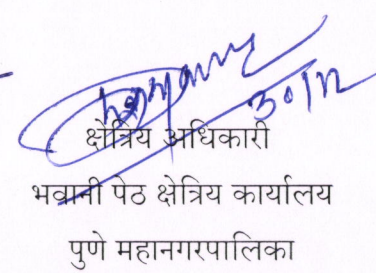 30/12
क्षेत्रिय अधिकारी
भवानी पेठ क्षेत्रिय कार्यालय
पुणे महानगरपालिका